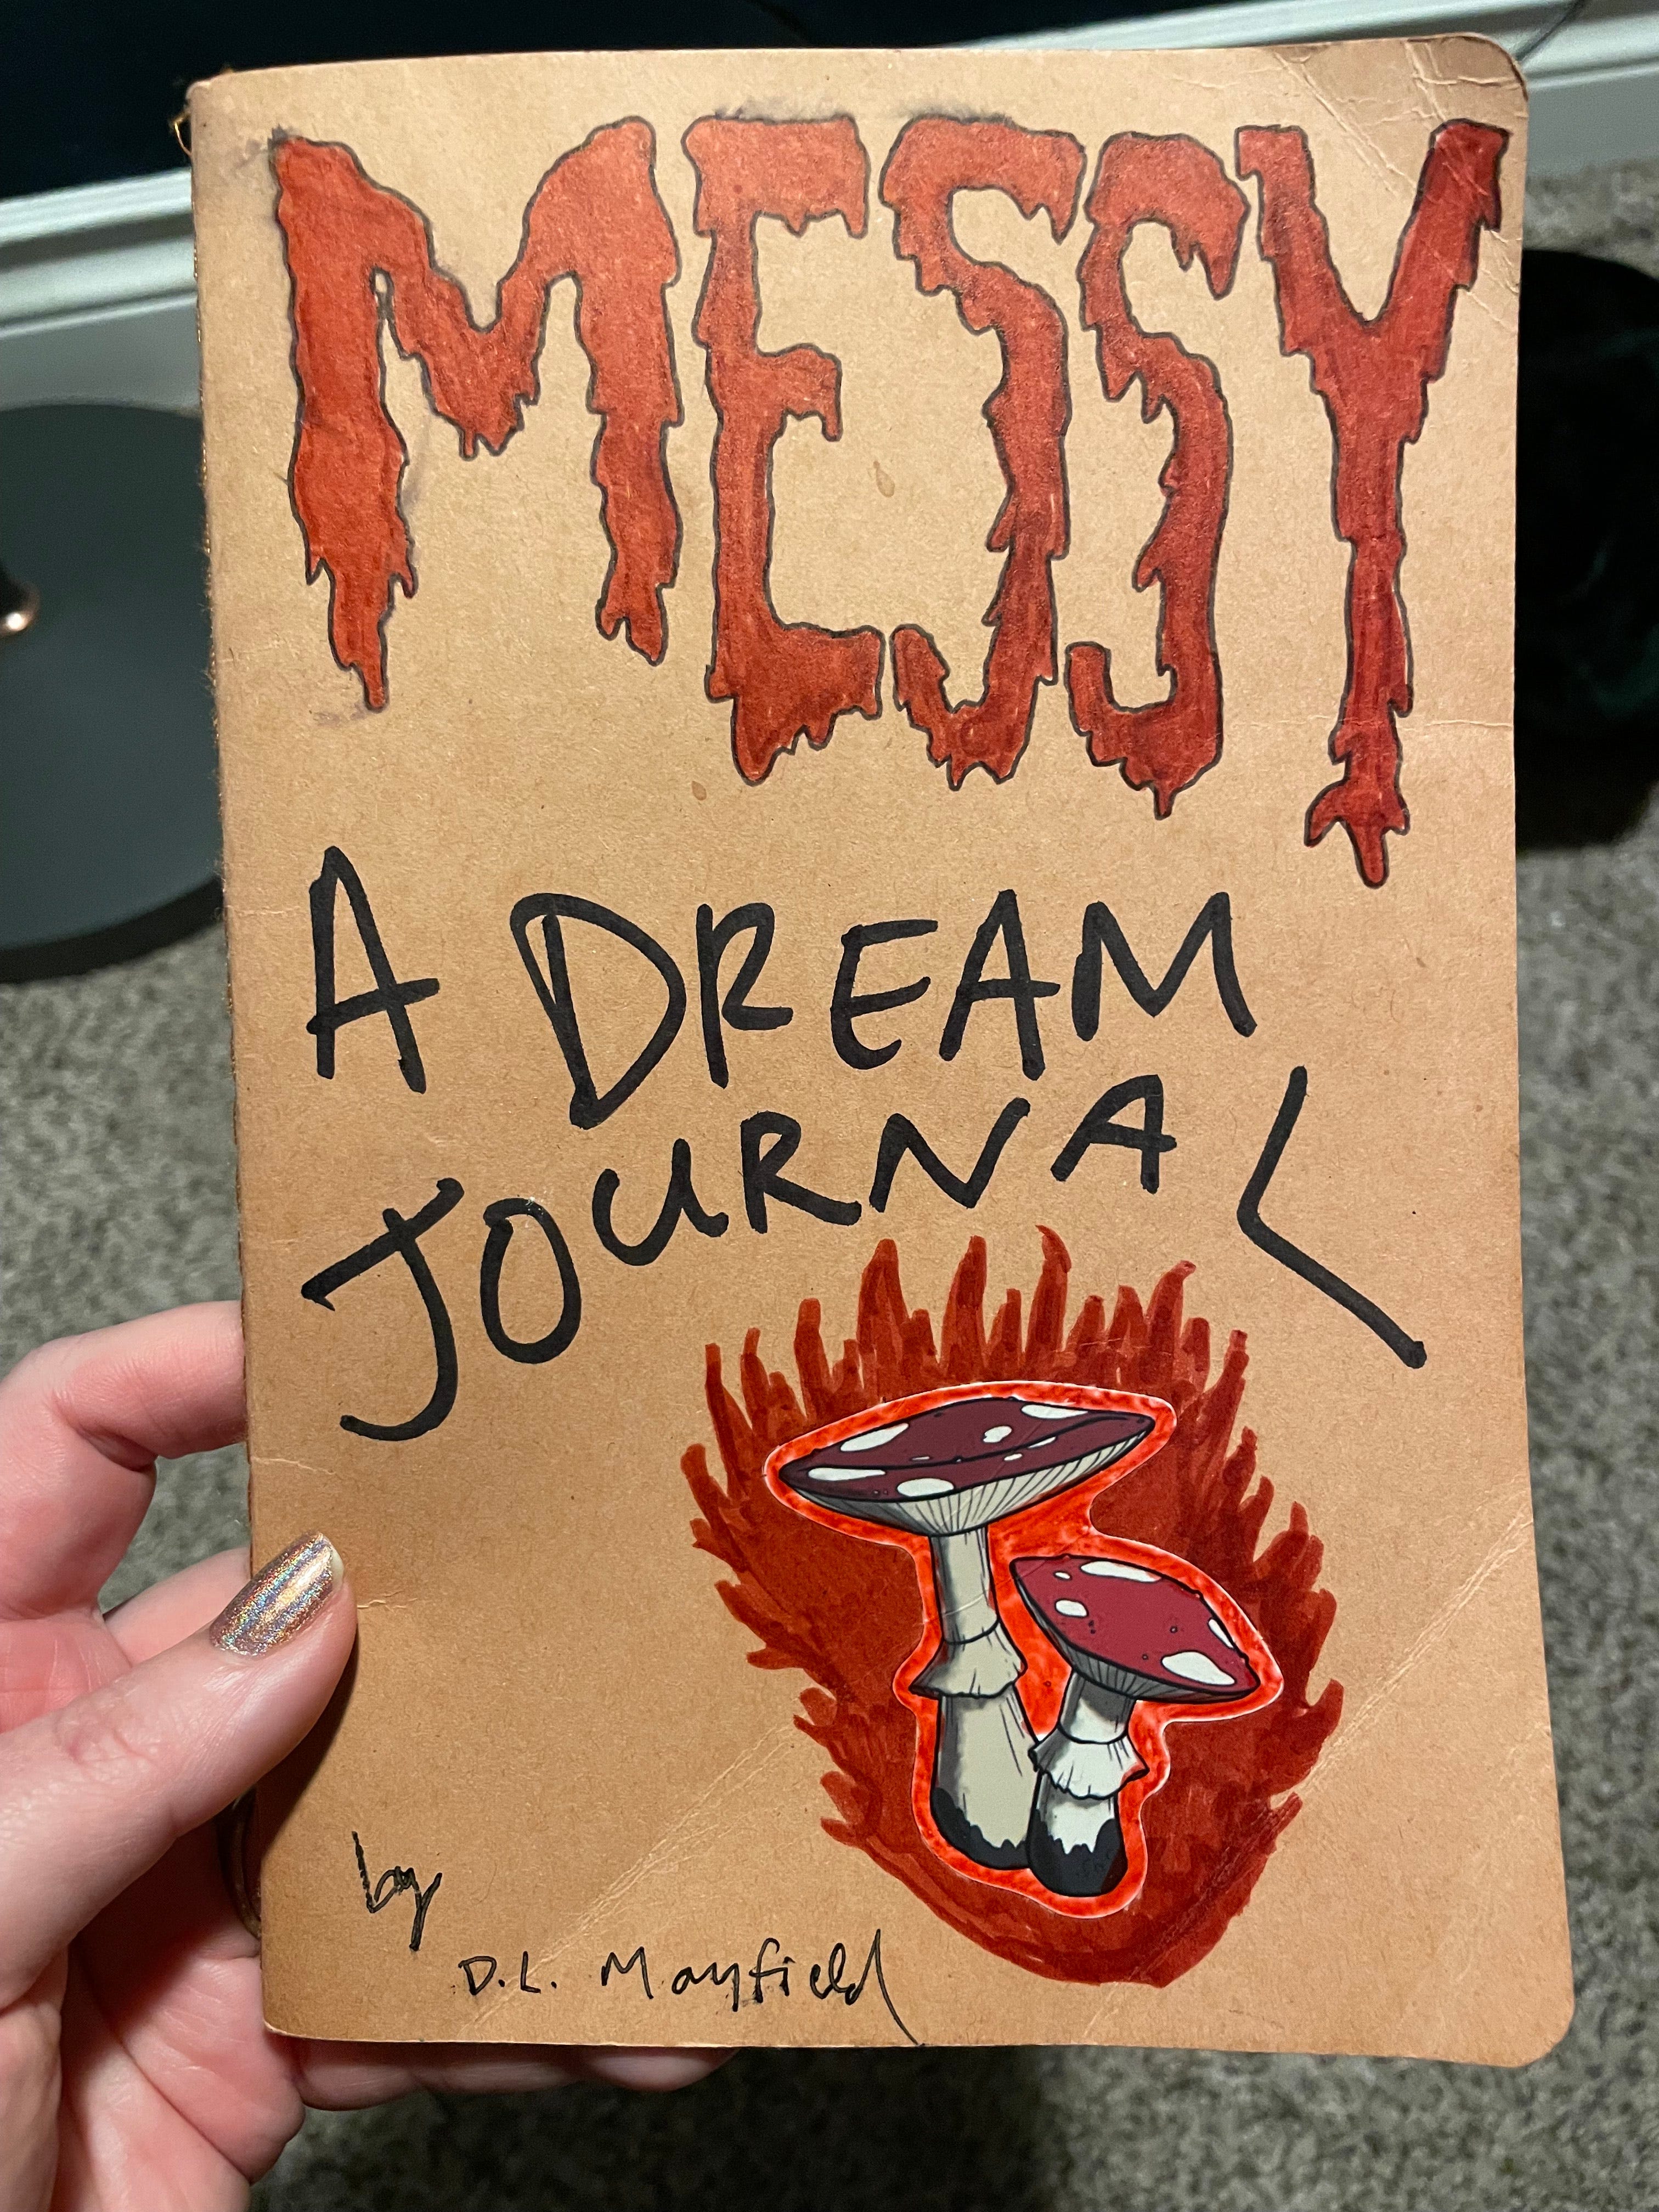 MESSY
A DREAM
JOURNAL
by
D.L. Mayfield